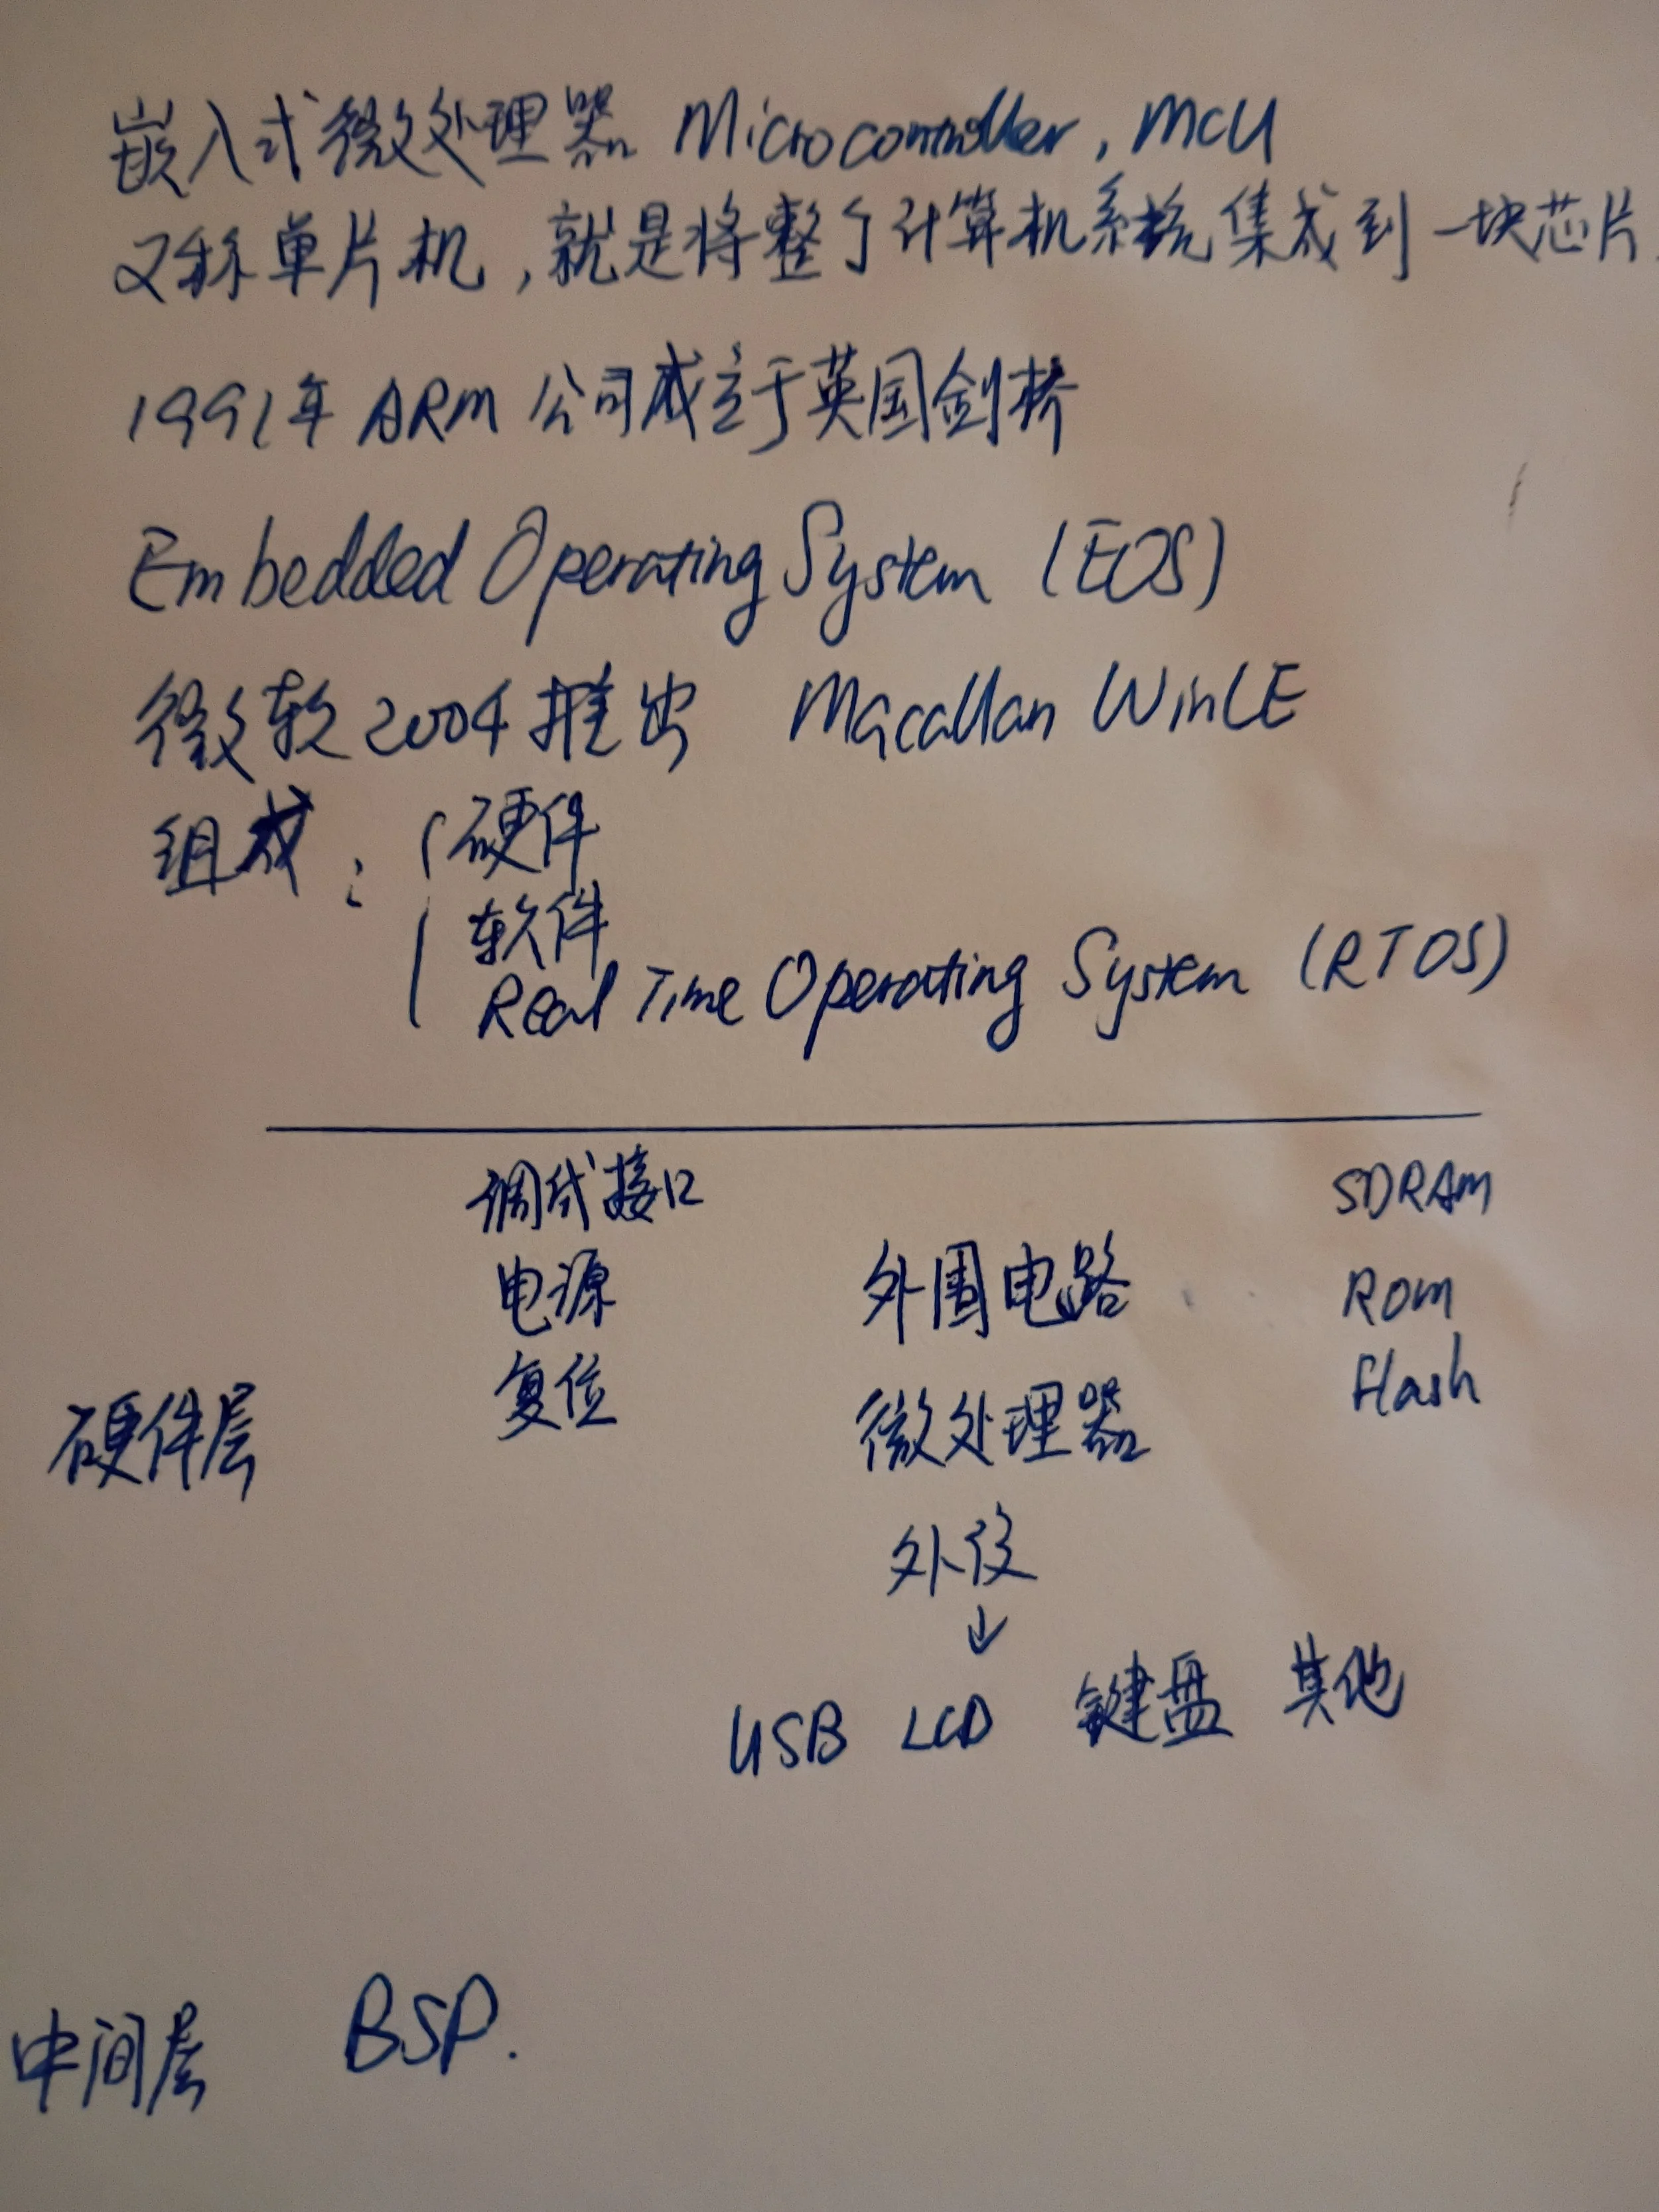 嵌入式微处理器 Microcontroller, MCU
又称单片机,就是将整个计算机系统集成到一块芯片
1991年 ARM 公司成立于英国剑桥
Embedded Operating System (EOS)
微软2004推出 Macallan WinCE
组成: 硬件
软件
Real Time Operating System (RTOS)
调试接口 SDRAM
电源 外围电路 Rom
复位 Flash
硬件层 微处理器
外设
↓
USB LCD 键盘 其他
中间层 BSP.